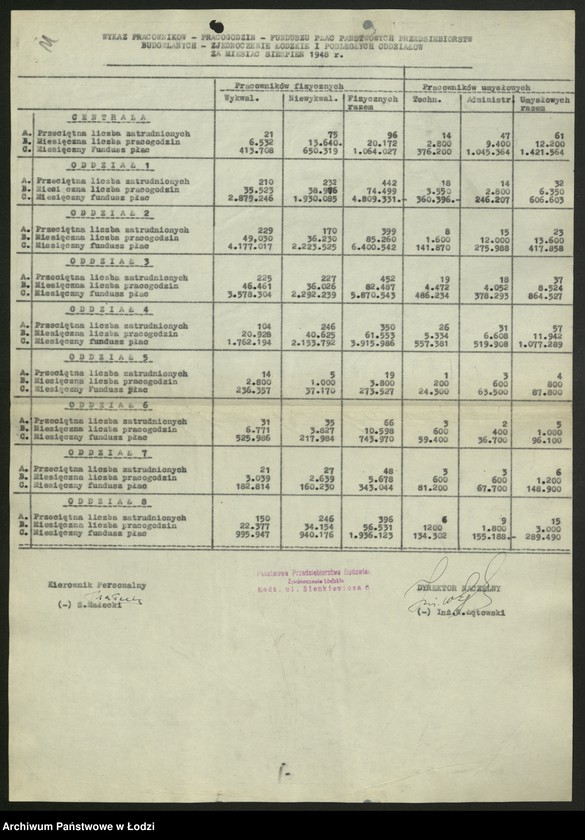 WYKAZ PRACOWNIKÓW - PRACOGODZIN - FUNDUSZU PŁAC PAŃSTWOWYCH PRZEDSIĘBIORSTW
BUDOWLANYCH - ZJEDNOCZENIE ŁÓDZKIE I PODLEGŁYCH ODDZIAŁÓW
ZA MIESIĄC SIERPIEŃ 1948 r.
Pracowników fizycznych Pracowników umysłowych
Wykwal. Niewykwal. Fizycznych razem Techn. Administr. Umysłowych razem
CENTRALA
A. Przeciętna liczba zatrudnionych 21 75 96 14 47 61
B. Miesięczna liczba pracogodzin 6.532 13.640. 20.172 2.800 9.400 12.200
C. Miesięczny Fundusz płac 413.708 650.319 1.064.027 376.200 1.045.364 1.421.564
ODDZIAŁ 1
A. Przeciętna liczba zatrudnionych 210 232 442 18 14 32
B. Miesięczna liczba pracogodzin 35.523 38.976 74.499 3.550 2.800 6.350
C. Miesięczny fundusz płac 2.879.246 1.930.085 4.809.331.- 360.396.- 246.207 606.603
ODDZIAŁ 2
A. Przeciętna liczba zatrudnionych 229 170 399 8 15 23
B. Miesięczna liczba pracogodzin 49,030 36.230 85.260 1.600 12.000 13.600
C. Miesięczny fundusz płac 4.177.017 2.223.525 6.400.542 141.870 275.988 417.858
ODDZIAŁ 3
A. Przeciętna liczba zatrudnionych 225 227 452 19 18 37
B. Miesięczna liczba pracogodzin 46.461 36.026 82.487 4.472 4.052 8.524
C. Miesięczny fundusz płac 3.578.304 2.292.239 5.870.543 486.234 378.293 864.527
ODDZIAŁ 4
A. Przeciętna liczba zatrudnionych 104 246 350 26 31 57
B. Miesięczna liczba pracogodzin 20.928 40.625 61.553 5.334 6.608 11.942
C. Miesięczny fundusz płac 1.762.194 2.153.792 3.915.986 557.381 519.908 1.077.289
ODDZIAŁ 5
A. Przeciętna liczba zatrudnionych 14 5 19 1 3 4
B. Miesięczna liczba pracogodzin 2.800 1.000 3.800 200 600 800
C. Miesięczny fundusz płac 236.357 37.170 273.527 24.300 63.500 87.800
ODDZIAŁ 6
A. Przeciętna liczba zatrudnionych 31 35 66 3 2 5
B. Miesięczna liczba pracogodzin 6.771 3.827 10.598 600 400 1.000
C. Miesięczny fundusz płac 525.986 217.984 743.970 59.400 36.700 96.100
ODDZIAŁ 7
A. Przeciętna liczba zatrudnionych 21 27 48 3 3 6
B. Miesięczna liczba pracogodzin 3.039 2.639 5.678 600 600 1.200
C. Miesięczny fundusz płac 182.814 160.230 343.044 81.200 67.700 148.900
ODDZIAŁ 8
A. Przeciętna liczba zatrudnionych 150 246 396 6 9 15
B. Miesięczna liczba pracogodzin 22.377 34.154 56.531 1200 1.800 3.000
C. Miesięczny fundusz płac 995.947 940.176 1.936.123 134.302 155.188.- 289.490
Kierownik Personalny
Państwowe Przedsiębiorstwo Budowlane
Zjednoczenie Łódzkie
Łódź, ul. Sienkiewicza
DYREKTOR NACZELNY
(-) Inż.
Archiwum Państwowe w Łodzi